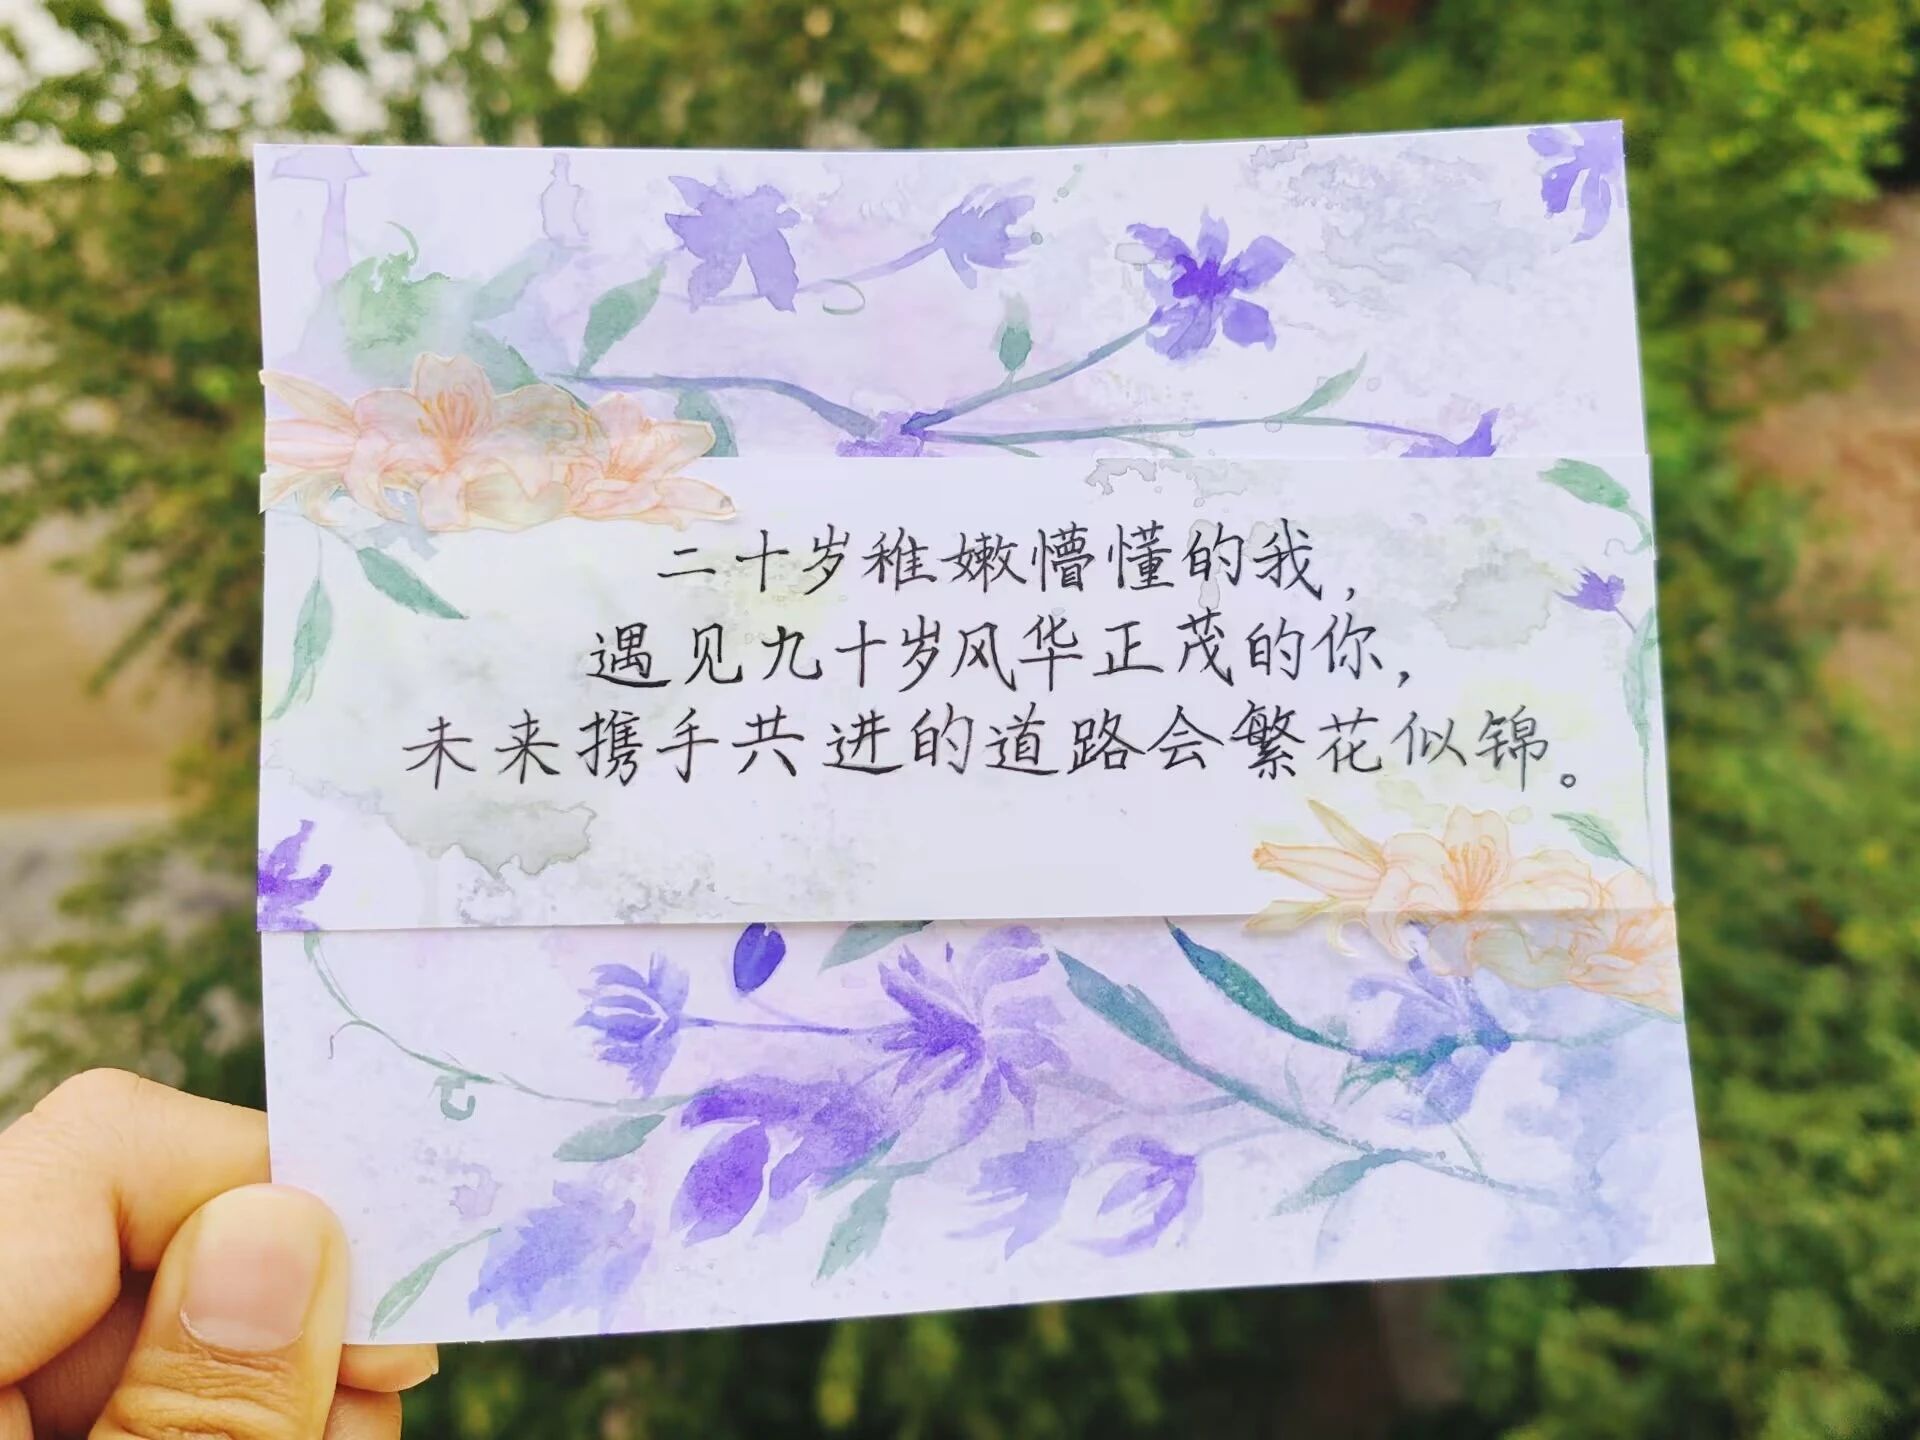 二十岁稚嫩懵懂的我，
遇见九十岁风华正茂的你，
未来携手共进的道路会繁花似锦。